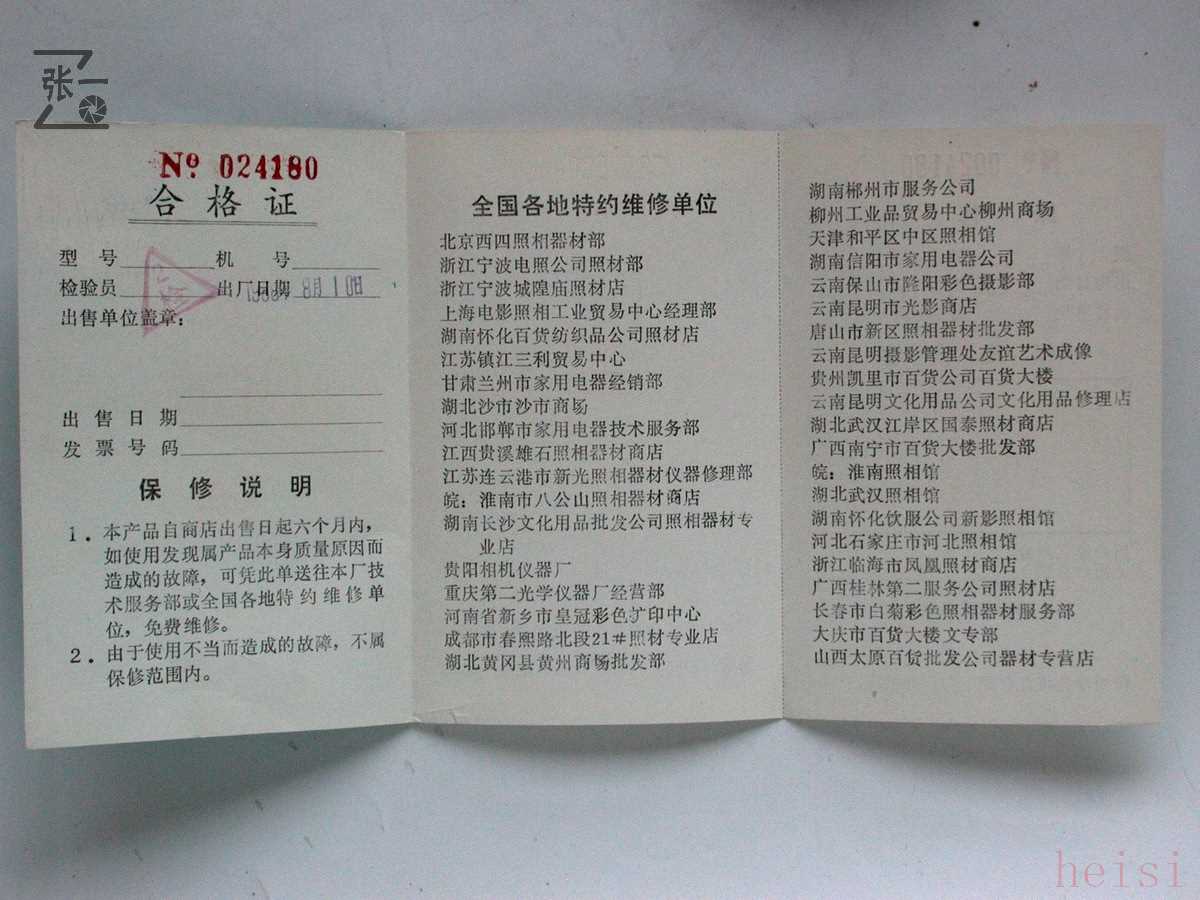 张一
№ 024180
合格证
型 号 机 号
检验员 出厂日期
出售单位盖章：
出售日期
发票号码
保修说明
1．本产品自商店出售日起六个月内，
如使用发现属产品本身质量原因而
造成的故障，可凭此单送往本厂技
术服务部或全国各地特约维修单
位，免费维修。
2．由于使用不当而造成的故障，不属
保修范围内。
全国各地特约维修单位
北京西四照相器材部
浙江宁波电照公司照材部
浙江宁波城隍庙照材店
上海电影照相工业贸易中心经理部
湖南怀化百货纺织品公司照材店
江苏镇江三利贸易中心
甘肃兰州市家用电器经销部
湖北沙市沙市商场
河北邯郸市家用电器技术服务部
江西贵溪雄石照相器材商店
江苏连云港市新光照相器材仪器修理部
皖：淮南市八公山照相器材商店
湖南长沙文化用品批发公司照相器材专
业店
贵阳相机仪器厂
重庆第二光学仪器厂经营部
河南省新乡市皇冠彩色扩印中心
成都市春熙路北段21#照材专业店
湖北黄冈县黄州商场批发部
湖南郴州市服务公司
柳州工业品贸易中心柳州商场
天津和平区中区照相馆
湖南信阳市家用电器公司
云南保山市隆阳彩色摄影部
云南昆明市光影商店
唐山市新区照相器材批发部
云南昆明摄影管理处友谊艺术成像
贵州凯里市百货公司百货大楼
云南昆明文化用品公司文化用品修理店
湖北武汉江岸区国泰照材商店
广西南宁市百货大楼批发部
皖：淮南照相馆
湖北武汉照相馆
湖南怀化饮服公司新影照相馆
河北石家庄市河北照相馆
浙江临海市凤凰照材商店
广西桂林第二服务公司照材店
长春市白菊彩色照相器材服务部
大庆市百货大楼文专部
山西太原百货批发公司器材专营店
heisi